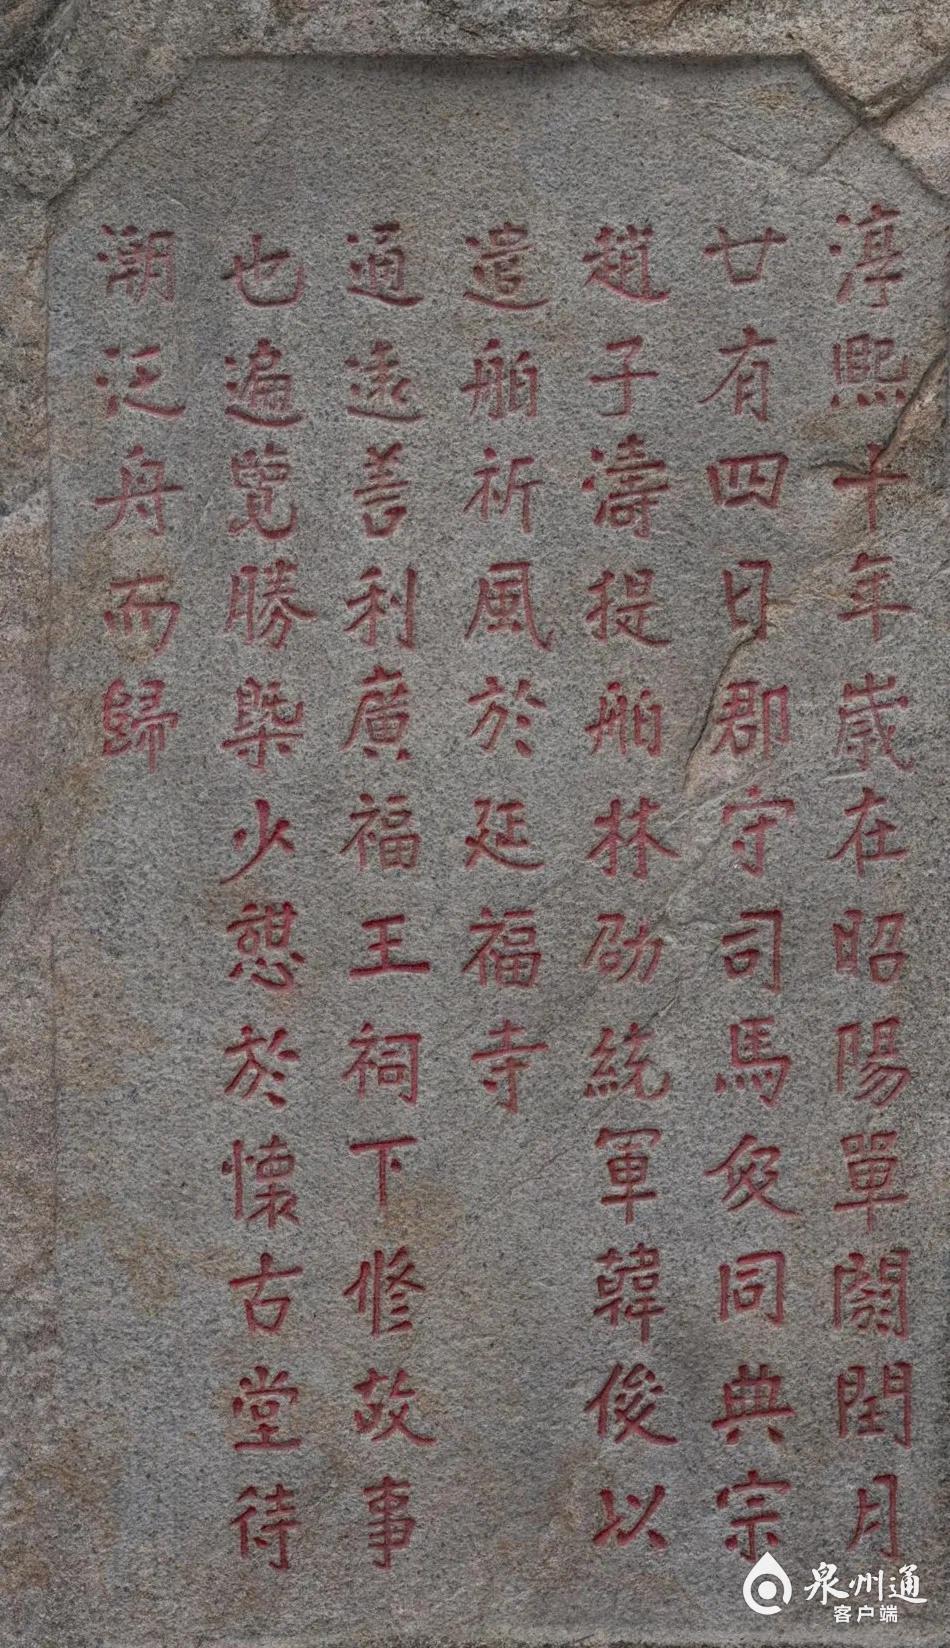 淳熙十年歲在昭陽單閼閏月
廿有四日郡守司馬伋同典宗
趙子濤提舶林劭統軍韓俊以
遣舶祈風於延福寺
通遠善利廣福王祠下修故事
也遍覽勝槩少憇於懷古堂待
潮泛舟而歸
泉州通
客户端